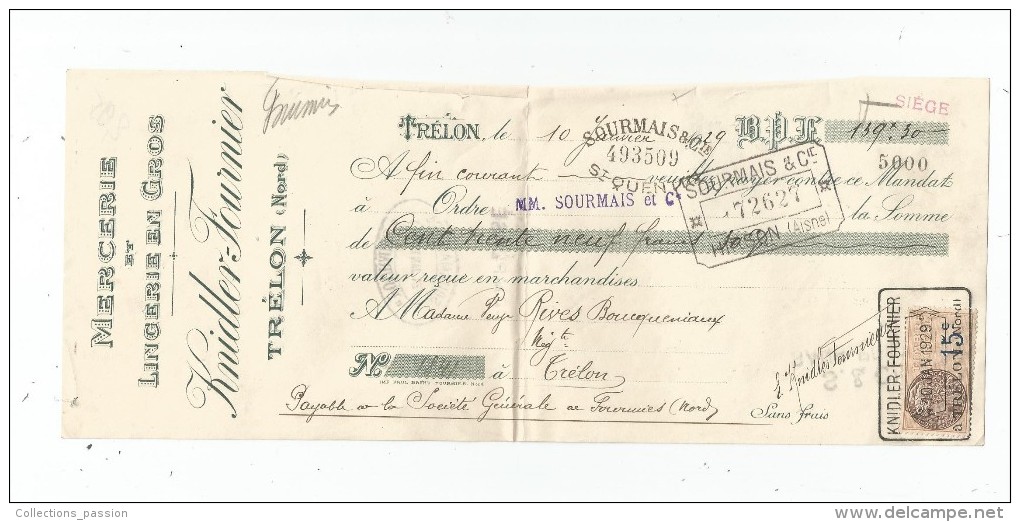 MERCERIE
ET
LINGERIE EN GROS
Knidler-Fournier
TRÉLON (Nord)
SIÈGE
TRÉLON, le 10 Janvier 1929 B.P.F. 139 f 50
SOURMAIS & CIE
493509
ST QUENTIN
5000
A fin courant veuillez payer contre ce Mandat
SOURMAIS & CIE
72627
(Aisne)
à Ordre MM. SOURMAIS et Cie la Somme
de Cent trente neuf francs 50
valeur reçue en marchandises.
A Madame Rives Boucqueniaux
Négte
No à Trélon
Payable à la Société Générale à Fourmies (Nord)
Sans frais
Knidler Fournier
KNIDLER-FOURNIER
10 JAN 1929
à TRÉLON (Nord)
15 c
Collections_passion
delcampe.net